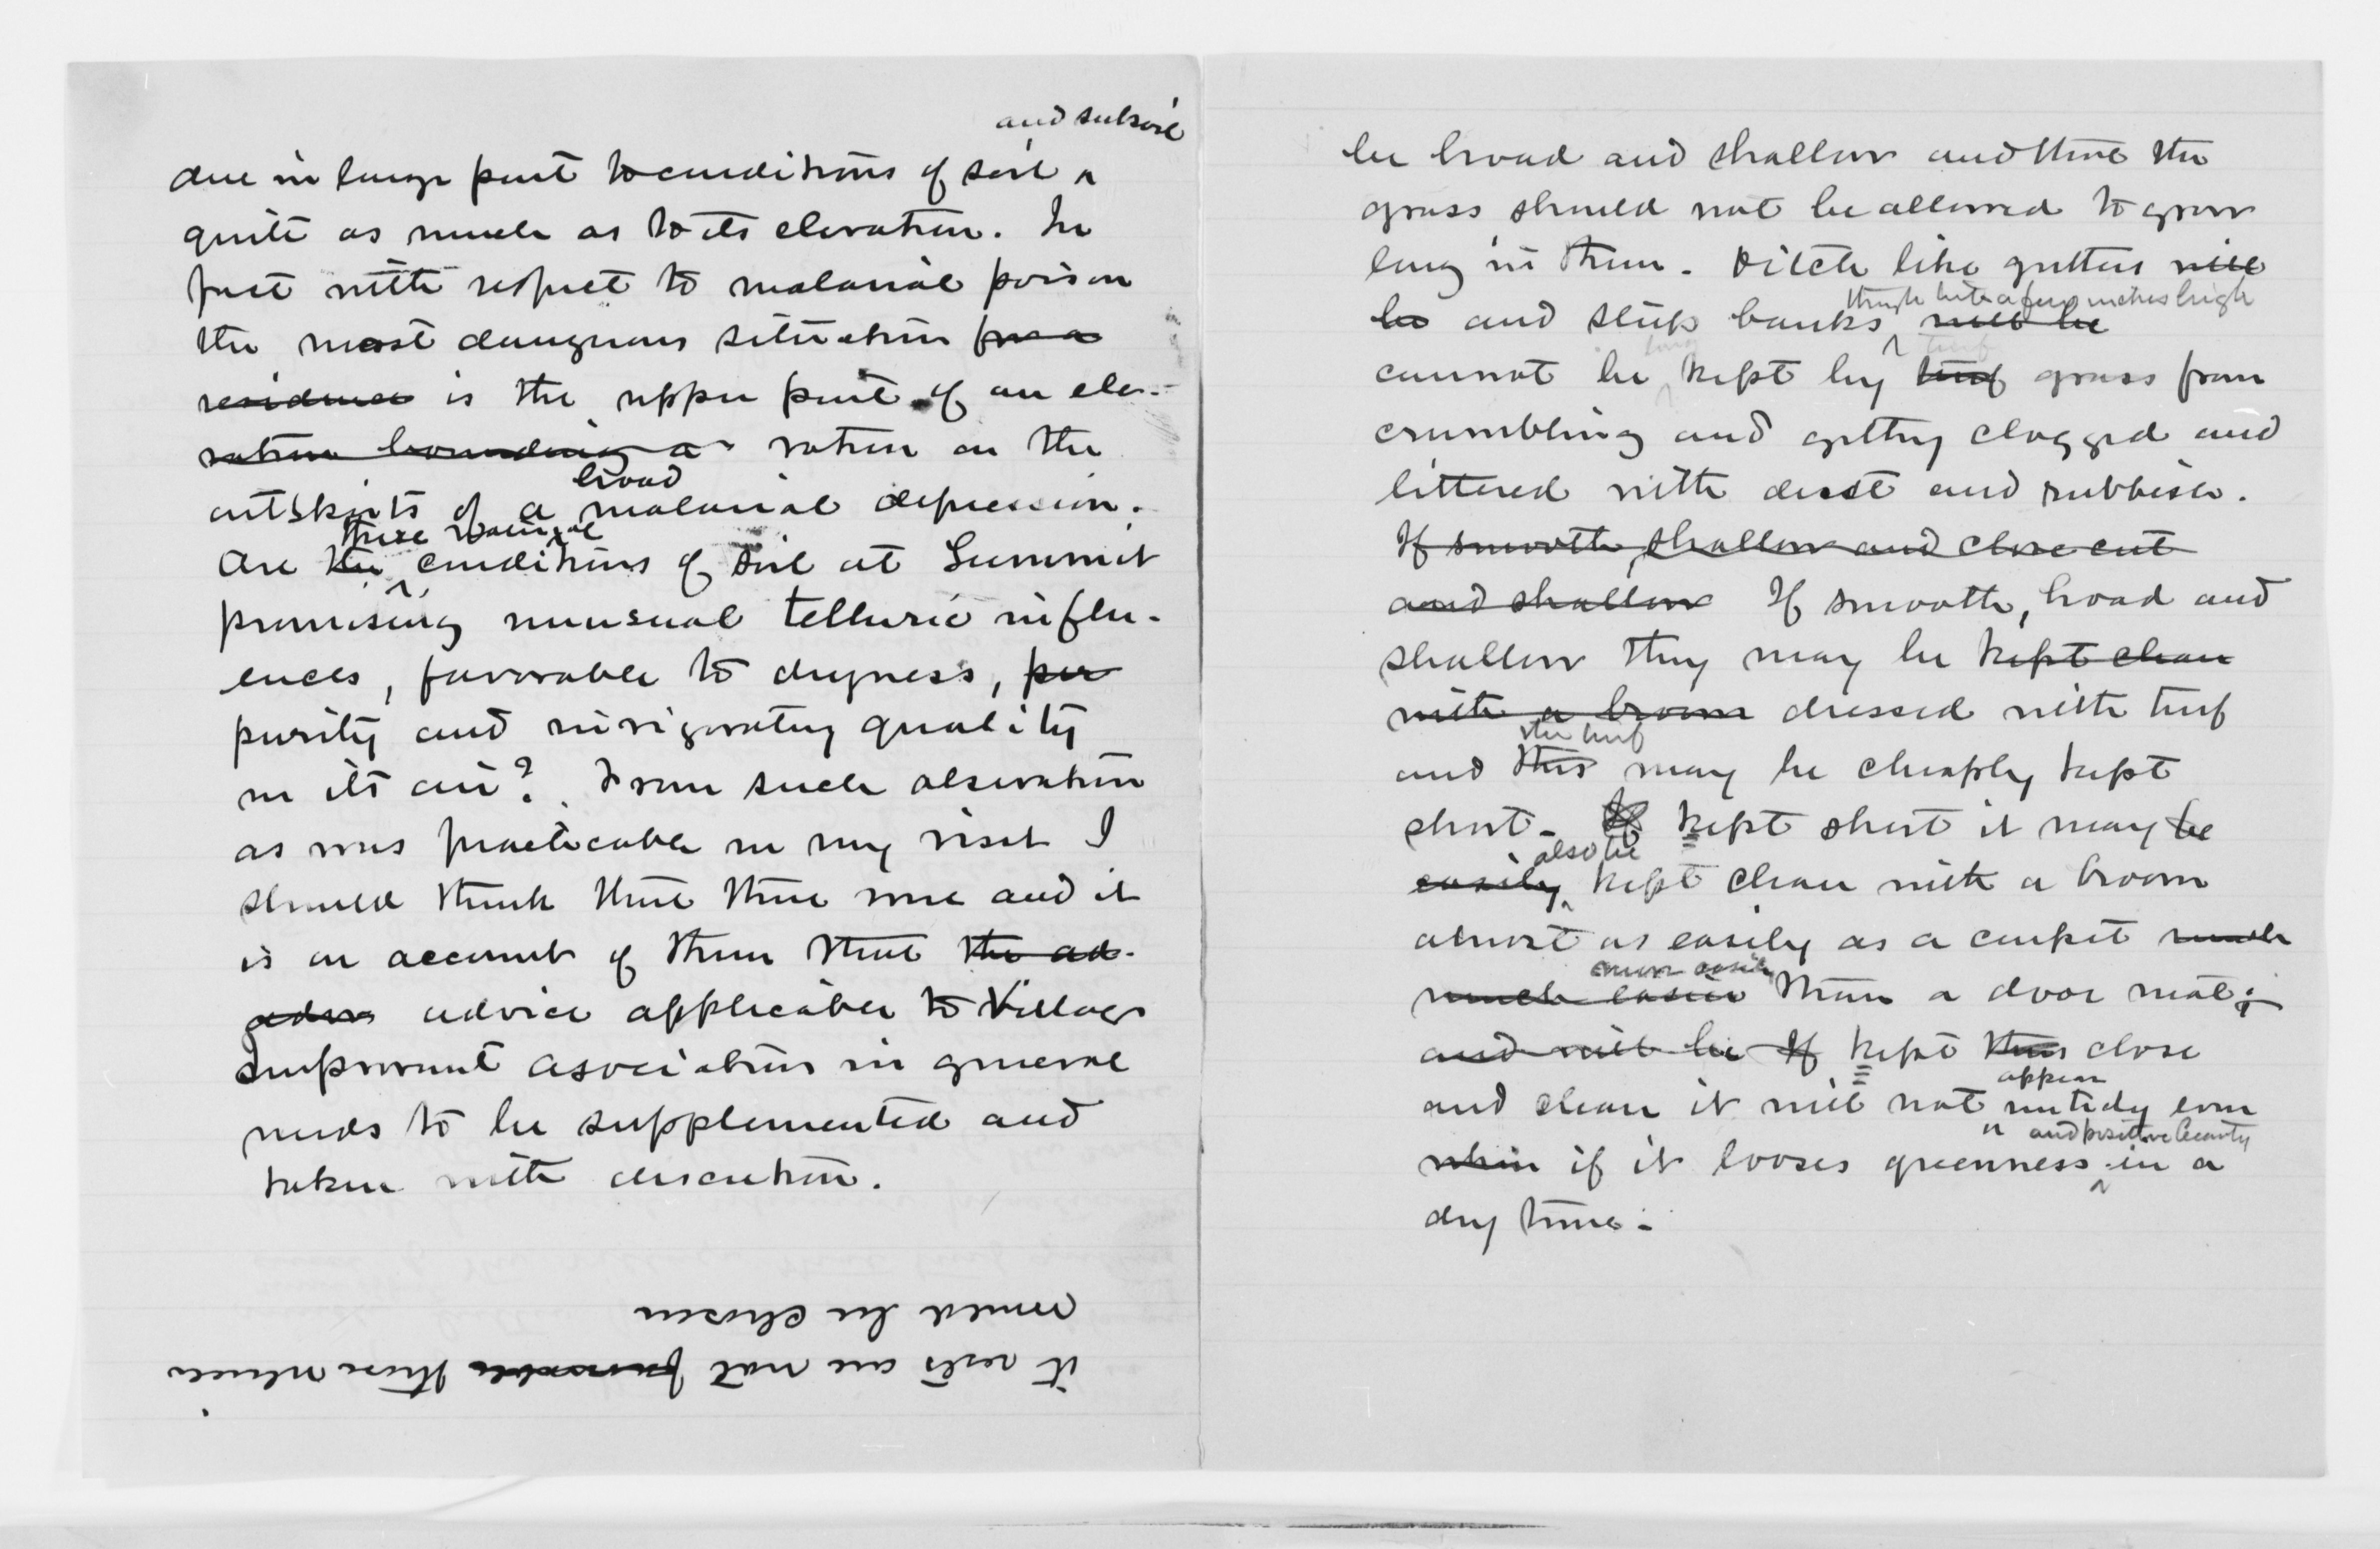 and subsoil
due in large part to conditions of soil
quite as much as to its elevation. In
fact with respect to malarial poison
the most dangerous situation for a
residence is the upper part of an ele-
vation bounding a vation on the
broad
outskirts of a malarial depression.
these
Are the conditions of soil at Summit
promising unusual telluric influ-
ences, favorable to dryness, pu
purity and invigorating quality
in its air? From such observation
as was practicable in my visit I
should think that there were and it
is on account of them that the ad-
adv advice applicable to Village
Improvement Association in general
needs to be supplemented and
taken with discretion.
would be chosen
it rests are not favorable those which
be broad and shallow and that the
grass should not be allowed to grow
long in them. Ditch like gutters will
though but a few inches high
be and steep banks will be
long turf
cannot be kept by turf grass from
crumbling and getting clogged and
littered with dust and rubbish.
If smooth, shallow and close cut
and shallow If smooth, broad and
shallow they may be kept clean
with a broom dressed with turf
the turf
and this may be cheaply kept
short. If kept short it may be
also be
easily kept clean with a broom
almost as easily as a carpet much
more easily
much easier than a door mat;
and will be If kept thus close
appear
and clean it will not untidy even
and positive beauty
when if it looses greenness in a
dry time.